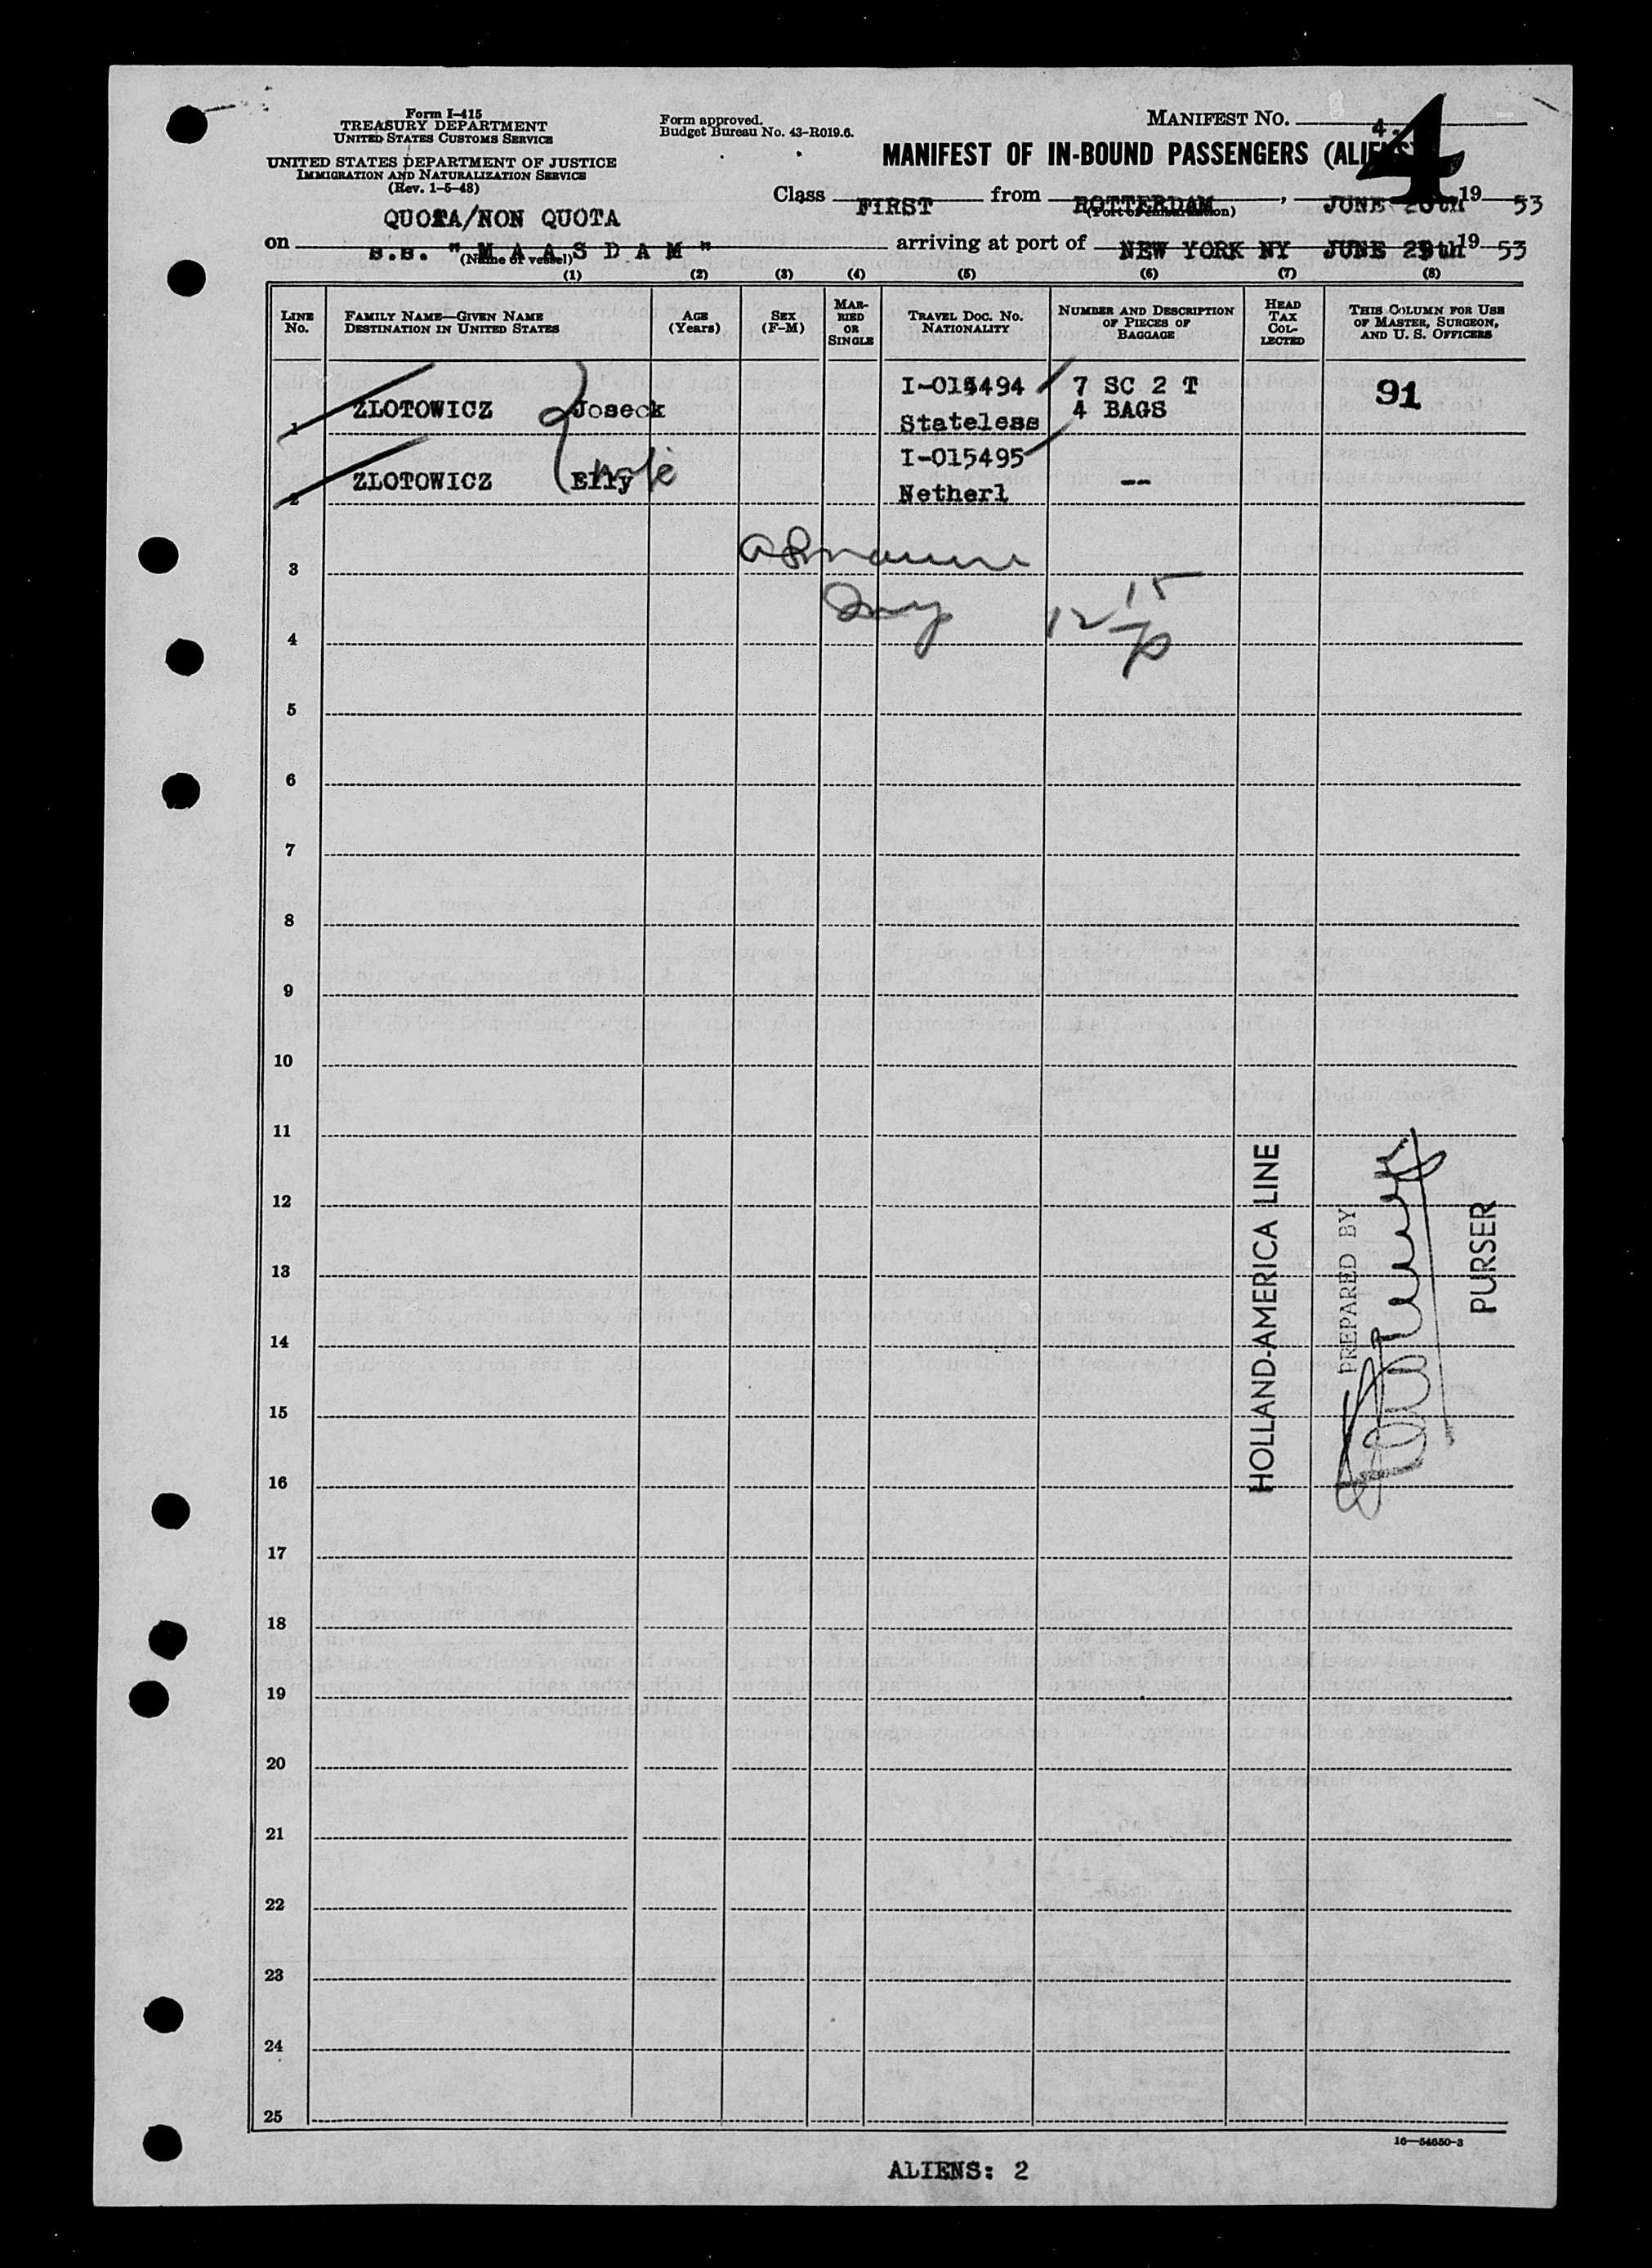 Form I-415
TREASURY DEPARTMENT
UNITED STATES CUSTOMS SERVICE
UNITED STATES DEPARTMENT OF JUSTICE
IMMIGRATION AND NATURALIZATION SERVICE
(Rev. 1-5-48)
Form approved.
Budget Bureau No. 43-R019.6.
MANIFEST NO. 4
4
MANIFEST OF IN-BOUND PASSENGERS (ALIENS)
Class FIRST from ROTTERDAM, JUNE 20th 19 53
(Port of embarkation)
QUOTA/NON QUOTA
on s.s. "M A A S D A M" arriving at port of NEW YORK NY JUNE 29th 19 53
(Name of vessel)
(1) (2) (3) (4) (5) (6) (7) (8)
LINE No. FAMILY NAME—GIVEN NAME DESTINATION IN UNITED STATES AGE (Years) SEX (F-M) MARRIED OR SINGLE TRAVEL DOC. NO. NATIONALITY NUMBER AND DESCRIPTION OF PIECES OF BAGGAGE HEAD TAX COLLECTED THIS COLUMN FOR USE OF MASTER, SURGEON, AND U. S. OFFICERS
1 ZLOTOWICZ Joseck I-015494 Stateless 7 SC 2 T 4 BAGS 91
2 ZLOTOWICZ Elly I-015495 Netherl --
3
4 12 15
5
6
7
8
9
10
11
12
13
14
15
16
17
18
19
20
21
22
23
24
25
HOLLAND-AMERICA LINE
PREPARED BY
PURSER
16—54650-3
ALIENS: 2